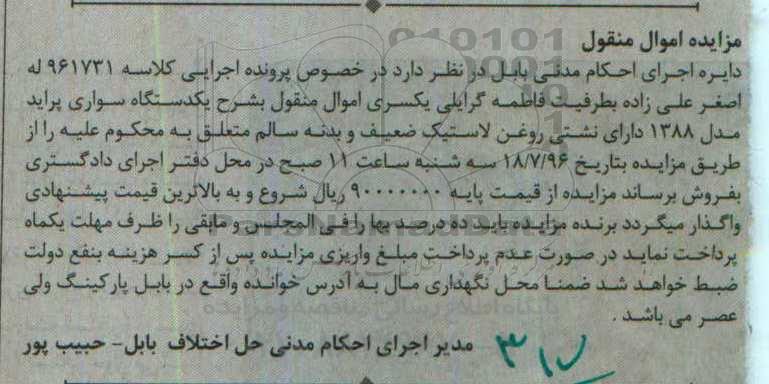 مزایده اموال منقول
دایره اجرای احکام مدنی بابل در نظر دارد در خصوص پرونده اجرایی کلاسه ۹۶۱۷۳۱ له
اصغر علی زاده بطرفیت فاطمه گرایلی یکسری اموال منقول بشرح یکدستگاه سواری پراید
مدل ۱۳۸۸ دارای نشتی روغن لاستیک ضعیف و بدنه سالم متعلق به محکوم علیه را از
طریق مزایده بتاریخ ۱۸/۷/۹۶ سه شنبه ساعت ۱۱ صبح در محل دفتر اجرای دادگستری
بفروش برساند مزایده از قیمت پایه ۹۰۰۰۰۰۰۰ ریال شروع و به بالاترین قیمت پیشنهادی
واگذار میگردد برنده مزایده باید ده درصد بها را فی المجلس و مابقی را ظرف مهلت یکماه
پرداخت نماید در صورت عدم پرداخت مبلغ واریزی مزایده پس از کسر هزینه بنفع دولت
ضبط خواهد شد ضمنا محل نگهداری مال به آدرس خوانده واقع در بابل پارکینگ ولی
عصر می باشد .
مدیر اجرای احکام مدنی حل اختلاف بابل- حبیب پور